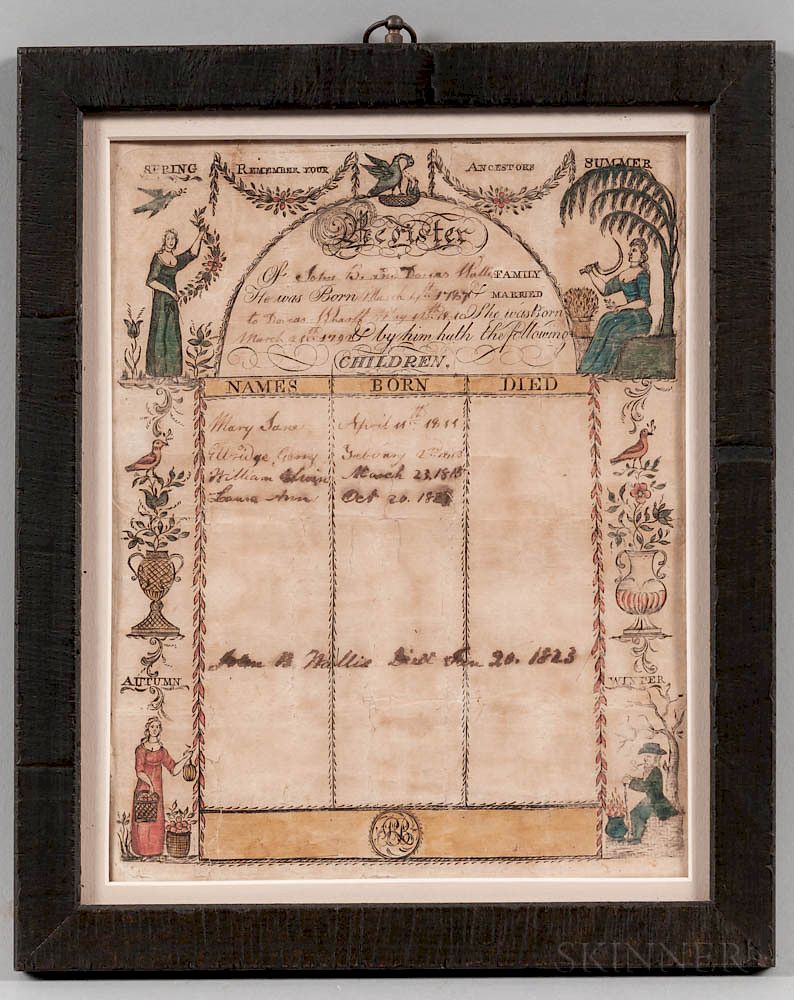 SPRING REMEMBER YOUR ANCESTORS SUMMER
Register
Of John B. and Dorcas Willis FAMILY
He was Born March 4th 1787 & MARRIED
to Dorcas May 12th 1810 She was Born
March 21th & by him hath the following
CHILDREN.
NAMES BORN DIED
Mary Jane April 11th 1811
Gerry Febuary
William Edwin March 23, 1818
Laura Ann Oct 20. 1821
John B Willis Died Jan 20. 1823
AUTUMN WINTER
SKINNER